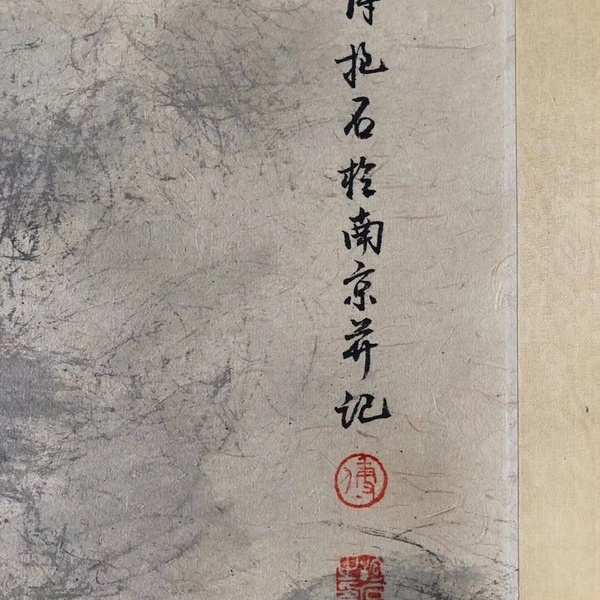 抱石於南京并记
傅